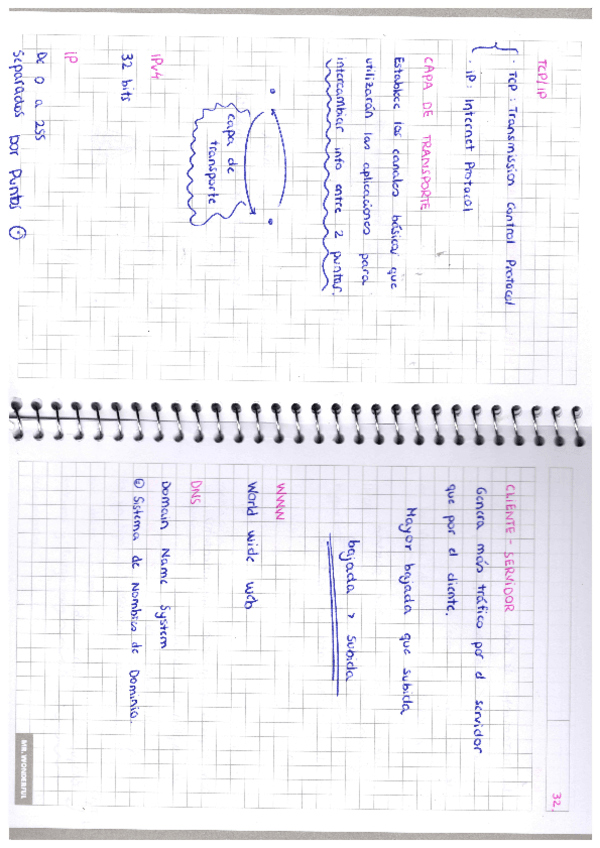 TCP/IP
· TCP : Transmission Control Protocol
· IP : Internet Protocol
CAPA DE TRANSPORTE
Establece los canales básicos que
utilizarán las aplicaciones para
intercambiar info entre 2 puntos.
capa de
transporte
IPv4
32 bits
IP
De 0 a 255
Separados por puntos ⊙
32.
CLIENTE - SERVIDOR
Genera más tráfico por el servidor
que por el cliente.
Mayor bajada que subida
bajada > subida
WWW
World Wide Web
DNS
Domain Name System
Sistema de Nombres de Dominio.
MR. WONDERFUL